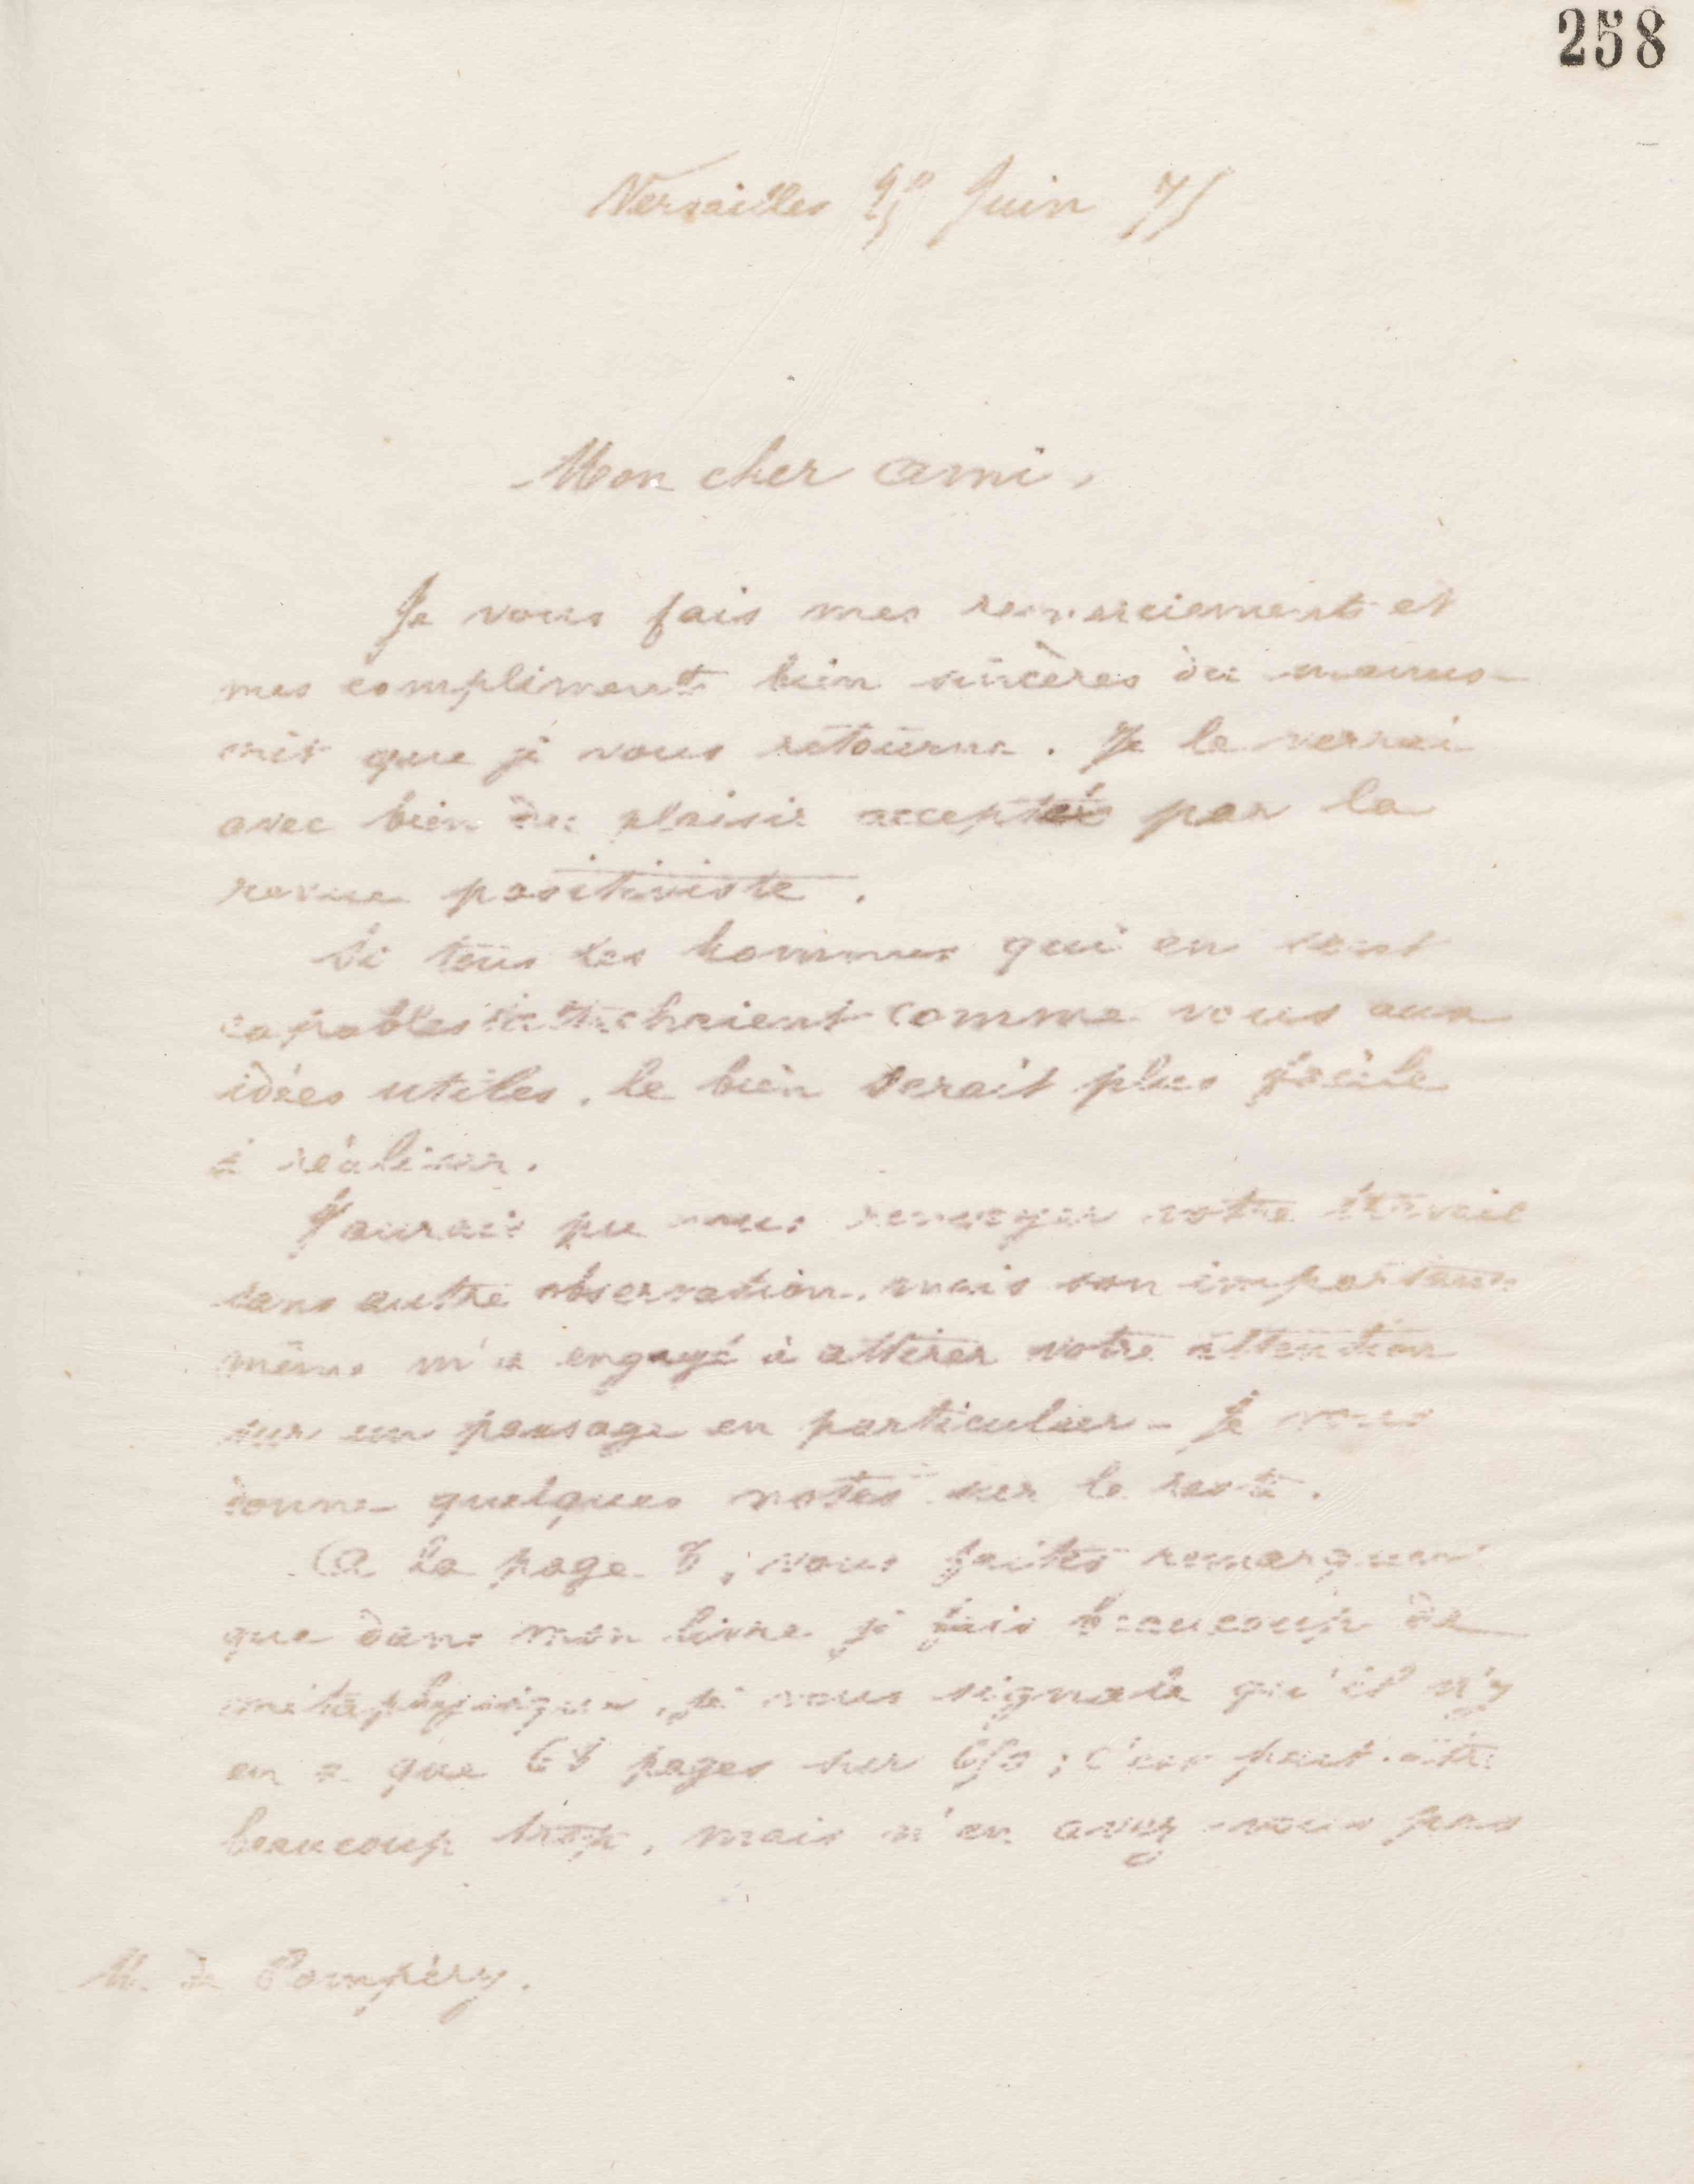 258
Versailles Juin 75
Mon cher ami,
Je vous fais mes remerciements et
mes compliments bien sincères du manus-
crit que je vous retourne. Je le verrai
avec bien du plaisir accepté par la
revue positiviste.
Si tous les hommes qui en sont
capables s'attachaient comme vous aux
idées utiles, le bien serait plus facile
à réaliser.
J'aurais pu vous renvoyer votre travail
sans autre observation, mais son importance
même m'a engagé à attirer votre attention
sur un passage en particulier - Je vous
donne quelques notes sur le reste.
A la page 8, vous faites remarquer
que dans mon livre je fais beaucoup de
métaphysique, je vous signale qu'il n'y
en a que pages sur 650 ; c'est peut-être
beaucoup trop, mais n'en avez-vous pas
M. de Pompéry.